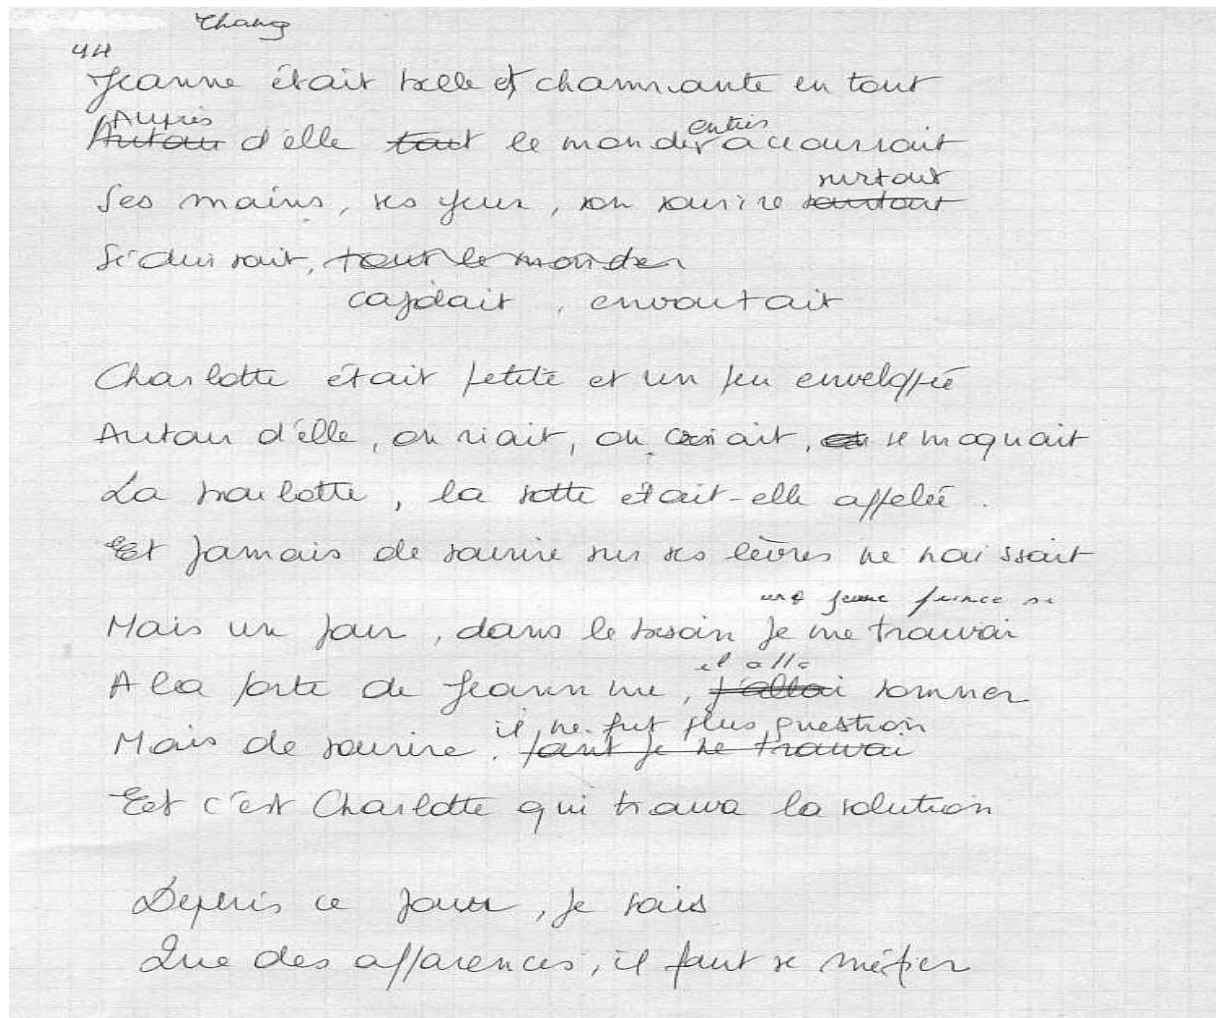 Chang
44
Jeanne était belle et charmante en tout
Auprès
Autour d'elle tout le monde entier accourait
surtout
Ses mains, ses yeux, son sourire surtout
Séduisait, tout le monde
captait, envoutait
Charlotte était petite et un peu enveloppée
Autour d'elle, on riait, on criait, et se moquait
La boulotte, la sotte était-elle appelée.
Et jamais de sourire sur ses lèvres ne naissait
une jeune prince se
Mais un jour, dans le besoin je me trouvai
il alla
A la porte de Jeanne, j'allai sonner
il ne fut plus question
Mais de sourire, point je ne trouvai
Et c'est Charlotte qui trouva la solution
Depuis ce jour, je sais
Que des apparences, il faut se méfier